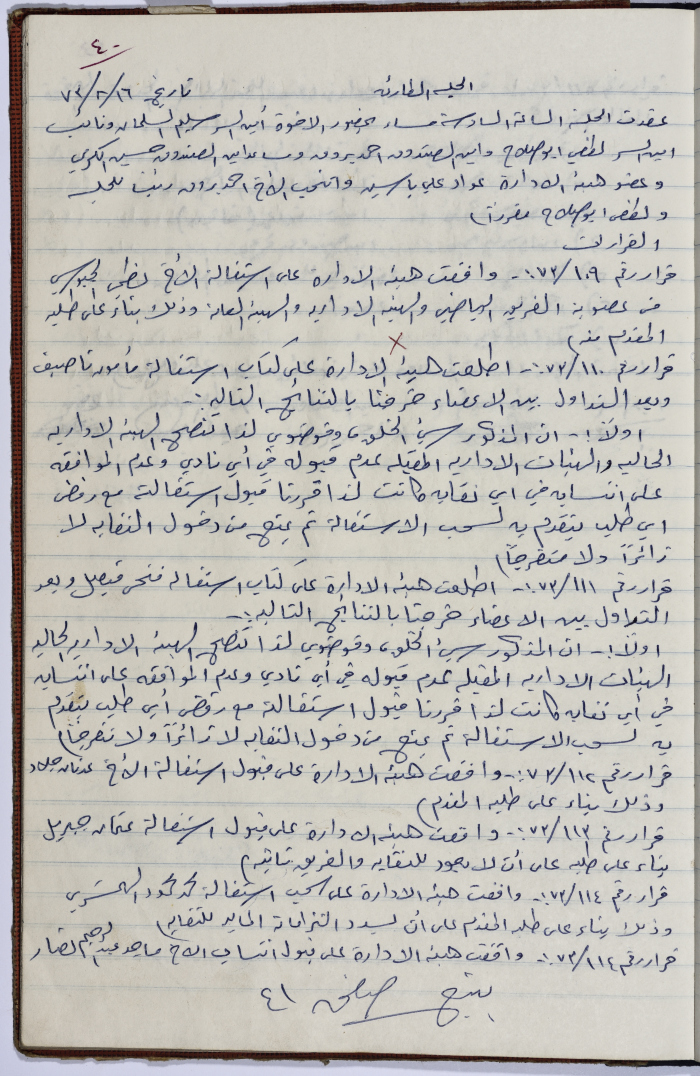 ٤٠
الجلسة الطارئه تاريخ ٧٣/٢/١٦
عقدت الجلسة الساعة السادسة مساء بحضور الاخوة أمين السر سليم السلمان ونائب
امين السر لطفي ابو صلاح وامين الصندوق احمد بدوه ومساعد امين الصندوق حسين الكري
وعضو هيئة الادارة عواد علي ياسين وانتخب الأخ احمد بدوه رئيسا للجلسه
ولطفي ابو صلاح مقرراً)
القرارات
قرار رقم ٧٣/١٠٩:- وافقت هيئة الادارة على استقالة الأخ لطفي الجيوسي
من عضوية الفريق الرياضي والهيئة الاداريه والهيئة العامة وذلك بناءً على طلبه
المقدم منه)
قرار رقم ٧٣/١١٠:- اطلعت هيئة الادارة على كتاب استقالة مأمون ناصيف
وبعد التداول بين الاعضاء خرجنا بالنتائج التاليه:-
اولاً:- ان المذكور سيئ الخلق وفوضوي لذا تنصح الهيئة الاداريه
الحاليه والهيئات الاداريه المقبله عدم قبوله في أي نادي وعدم الموافقه
على انتسابه في اي نقابه كانت لذا قررنا قبول استقالته مع رفض
اي طلب يتقدم به لسحب الاستقالة ثم يمنع من دخول النقابه لا
زائراً ولا متفرجاً)
قرار رقم ٧٣/١١١:- اطلعت هيئة الادارة على كتاب استقاله فتحي فيصل وبعد
التداول بين الاعضاء خرجنا بالنتائج التاليه:-
اولاً:- ان المذكور سيئ الخلق وفوضوي لذا تنصح الهيئة الاداريه الحاليه
الهيئات الاداريه المقبله عدم قبوله في أي نادي وعدم الموافقه على انتسابه
في أي نقابه كانت لذا قررنا قبول استقالة مع رفض أي طلب يتقدم
به لسحب الاستقالة ثم يمنع من دخول النقابه لا زائراً ولا متفرجاً)
قرار رقم ٧٣/١١٢:- وافقت هيئة الادارة على قبول استقالة الأخ عدنان جلاد
وذلك بناء على طلبه المقدم)
قرار رقم ٧٣/١١٣:- وافقت هيئة الادارة على قبول استقالة عثمان جبريل
بناء على طلبه على أن لا يعود للنقابه والفريق ثانيه)
قرار رقم ٧٣/١١٤:- وافقت هيئة الادارة على سحب استقالة محمد محمود
وذلك بناء على طلبه المقدم على أن يسدد التزاماته الماليه للنقابه)
قرار رقم ٧٣/١١٤:- وافقت هيئة الادارة على قبول انتساب الاخ ماجد عبد الرحيم القصار
يتبع صفحة ٤١